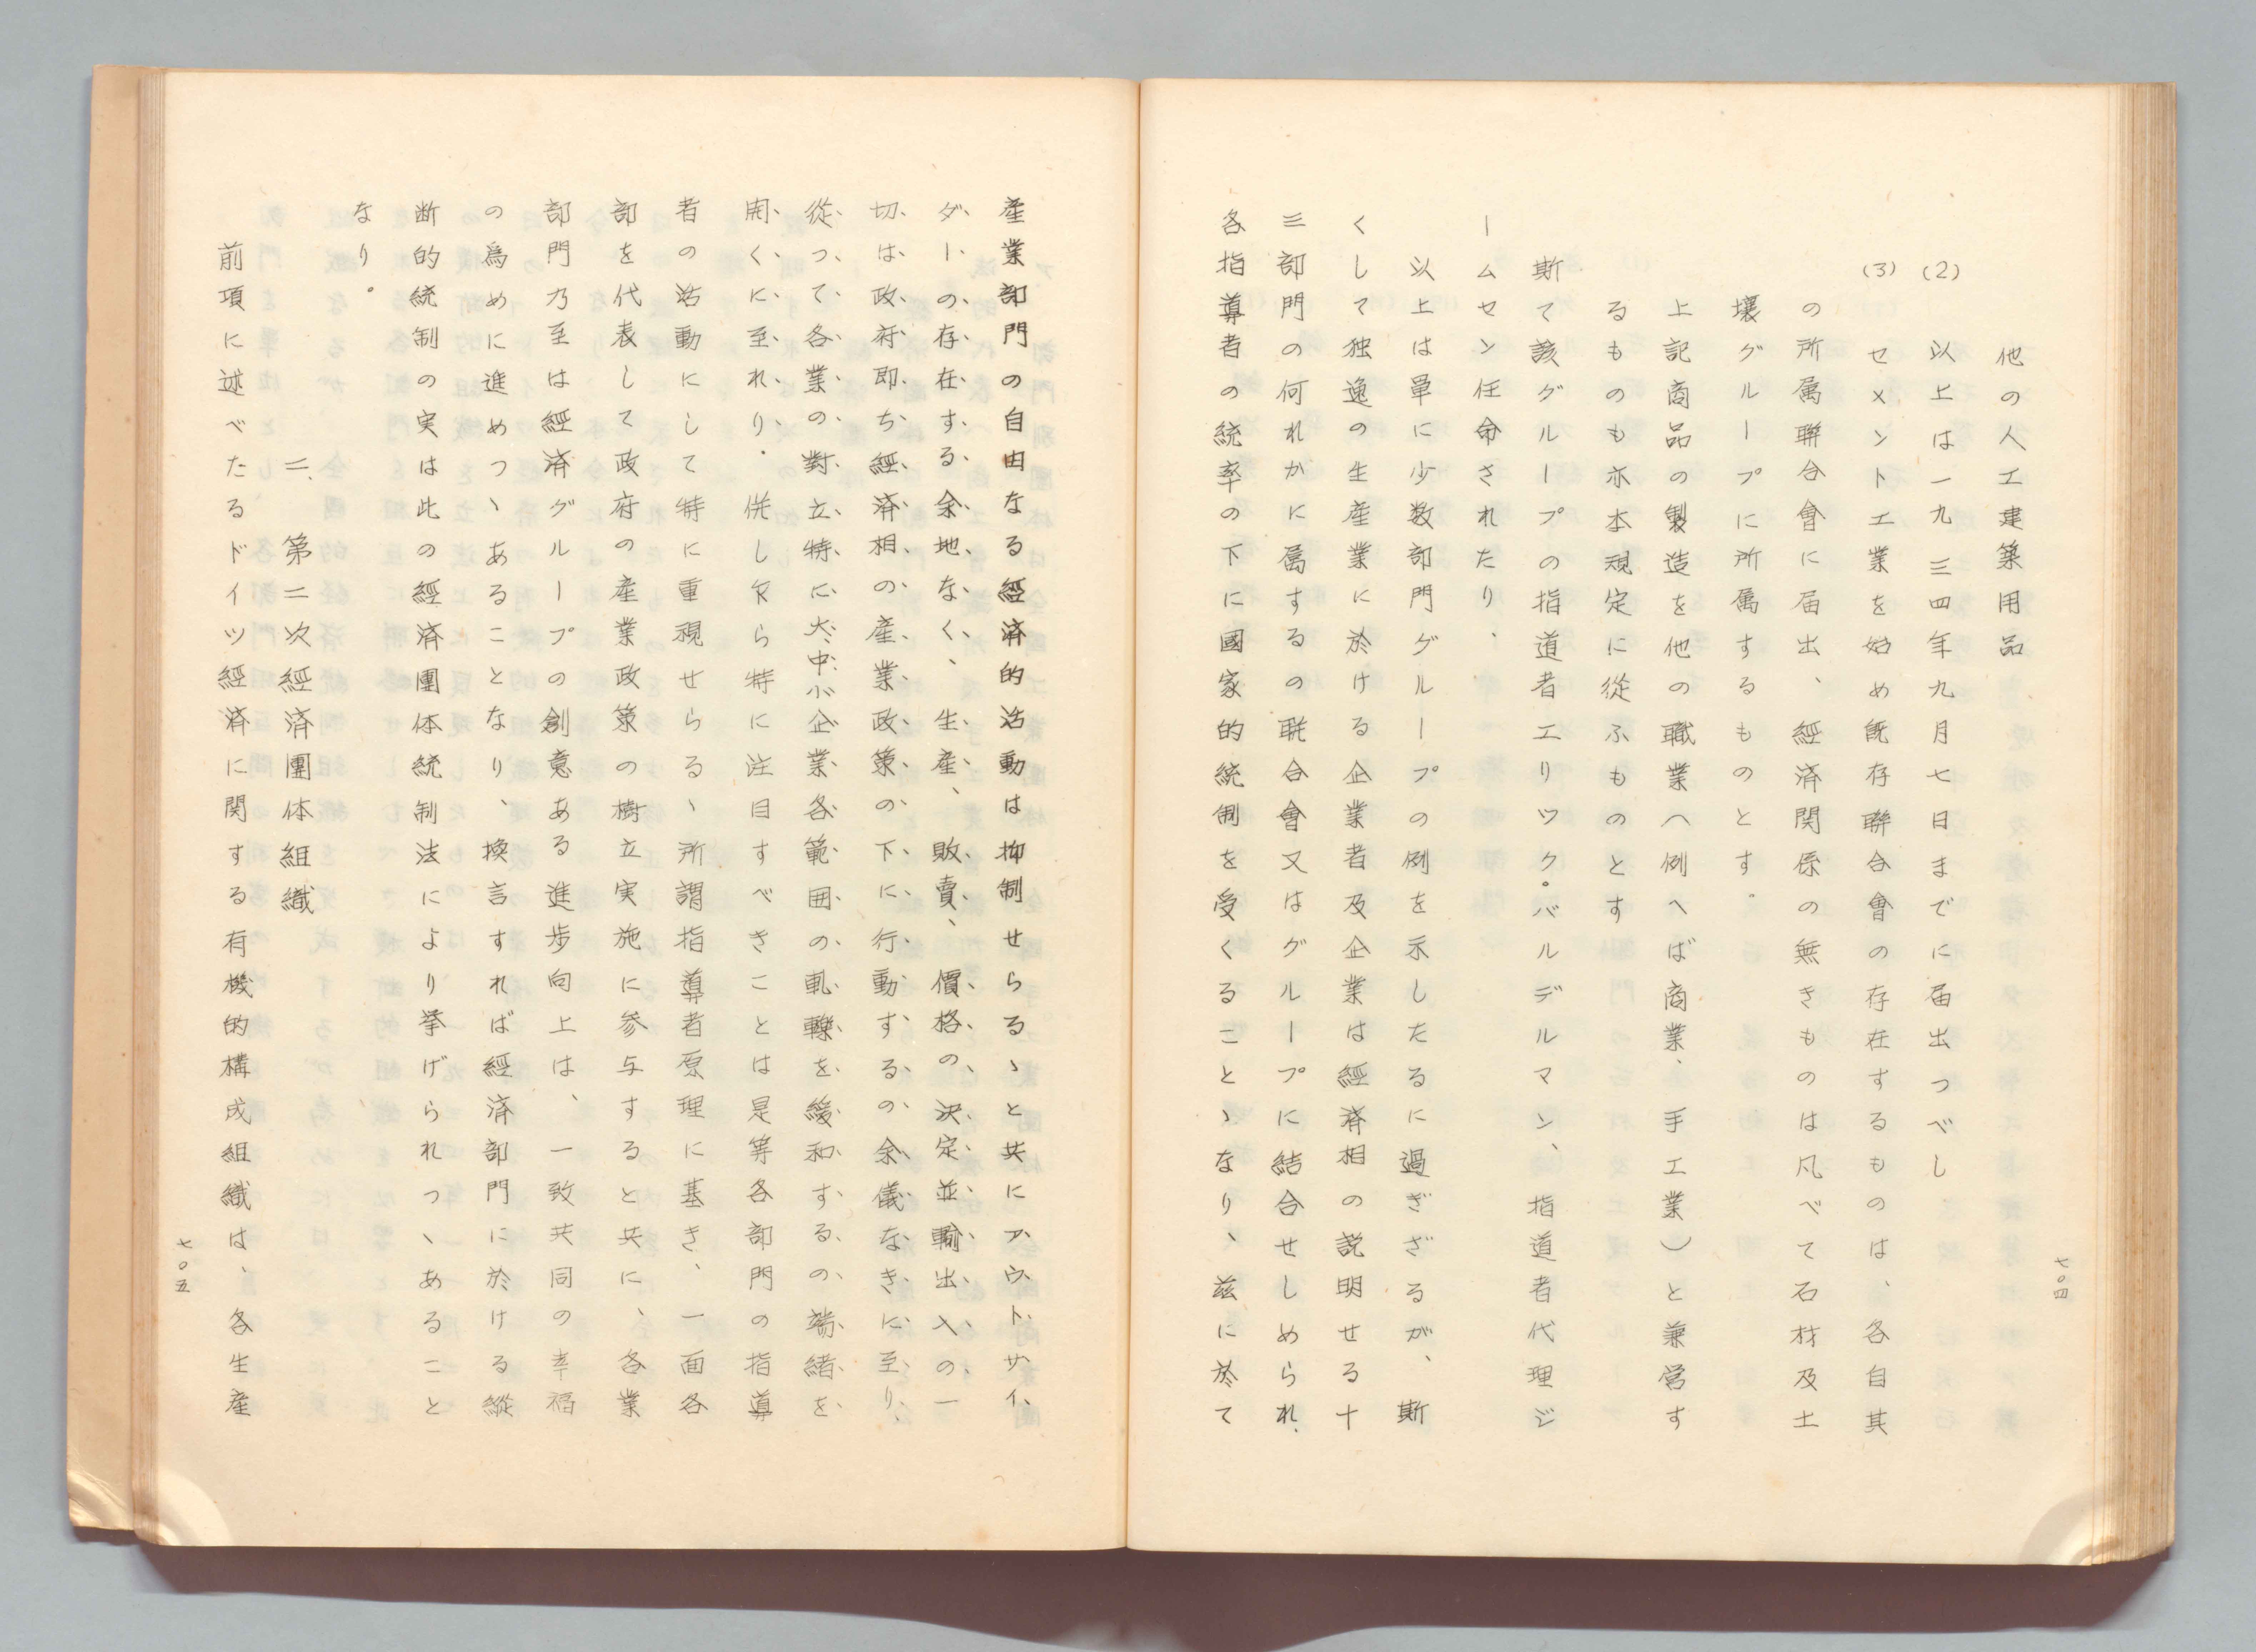 他の人工建築用品
(2) 以上は一九三四年九月七日までに届出つべし
(3) セメント工業を始め既存聯合會の存在するものは、各自其
の所属聯合會に届出、經済関係の無きものは凡べて石材及土
壤グループに所属するものとす。
上記商品の製造を他の職業(例へば商業、手工業)と兼営す
るものも亦本規定に從ふものとす
斯て該グループの指道者エリツク・バルデルマン、指道者代理ジ
ームセン任命されたり、
以上は單に少数部門グループの例を示したるに過ぎざるが、斯
くして独逸の生産業に於ける企業者及企業は經済相の説明せる十
三部門の何れかに属するの聯合會又はグループに結合せしめられ、
各指導者の統率の下に國家的統制を受くることゝなり、茲に於て
七〇四
産業部門の自由なる經済的活動は抑制せらるゝと共にアウトサイ
ダーの存在する余地なく、生産、敗賣、價格の決定並輸出入の一
切は政府即ち經済相の産業政策の下に行動するの余儀なきに至り、
從つて各業の對立特に大中小企業各範囲の軋轢を緩和するの端緒を
開くに至れり。併し乍ら特に注目すべきことは是等各部門の指導
者の活動にして特に重視せらるゝ所謂指導者原理に基き、一面各
部を代表して政府の産業政策の樹立実施に参与すると共に、各業
部門乃至は經済グループの創意ある進歩向上は、一致共同の幸福
の爲めに進めつゝあることなり、換言すれば經済部門に於ける縱
断的統制の実は此の經済團体統制法により挙げられつゝあること
なり。
二、第二次經済團体組織
前項に述べたるドイツ經済に関する有機的構成組織は、各生産
七〇五